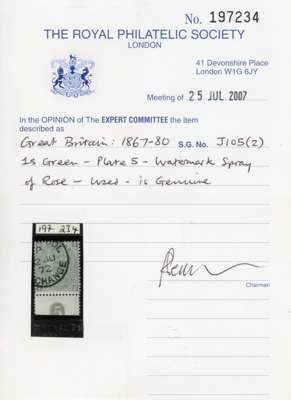 No. 197234
THE ROYAL PHILATELIC SOCIETY
LONDON
41 Devonshire Place
London W1G 6JY
Meeting of 25 JUL 2007
In the OPINION of The EXPERT COMMITTEE the item
described as
Great Britain: 1867-80 S.G. No. J105(2)
1s Green - Plate 5 - Watermark Spray
of Rose - Used - is Genuine
197 234
72
CHANGE
Chairman